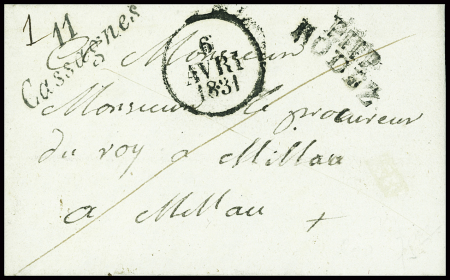 1 11
Cassagnes
6
AVRI
1831
P.11.P.
RODEZ
A Monsieur
Monsieur le procureur
du roy a Millau
a Millau